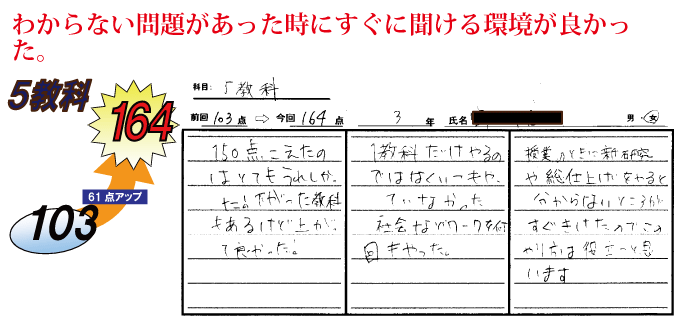 わからない問題があった時にすぐに聞ける環境が良かっ
た。
5教科
164
61 点アップ
103
科目: 5教科
前回 103 点 ⇨ 今回 164 点 3 年 氏名 男・女
150点こえたの
はとてもうれしか
下がった教科
もあるけど上がっ
て良かった!
1教科だけやるの
ではなく
ていなかった
社会などワークを何
回もやった。
授業のときに新研究
や総仕上げをやると
分からないところが
すぐきけたのでこの
やり方は役立つと思
います